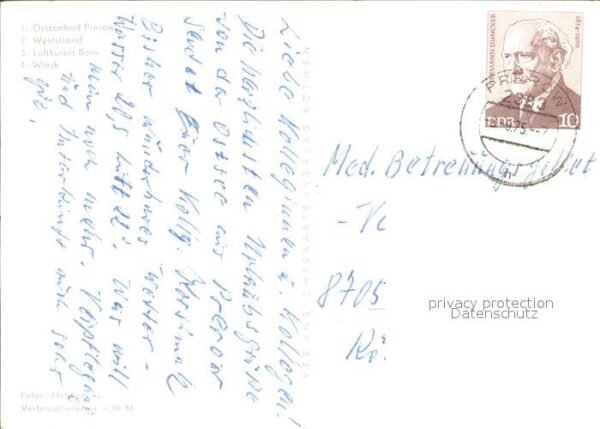 1. Ostseebad Prerow
2. Weststrand
3. Luftkurort Born
4. Wieck
Liebe Kolleginnen u. Kollegen!
Die herzlichsten Urlaubsgrüße
von der Ostsee aus Prerow
sendet Euer Kollg.
Bisher wunderbares Wetter -
Wasser 20,5 Luft 28°. Was will
man noch mehr. Verpflegung
und Unterkunft auch sehr
gut.
Fotos:
Verbraucherpreis -,20 M
VEB ANSICHTSKARTENVERLAG KÖTHEN
HERMANN DUNCKER
1874-1960
DDR 10
PREROW
2383
75
Med. Betreuungs
8705
privacy protection
Datenschutz